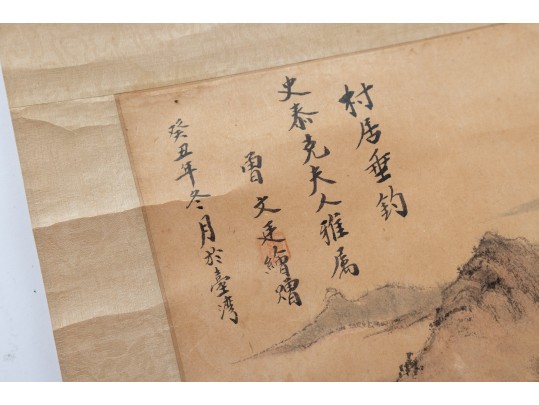 村居垂釣
史泰克夫人雅属
曹文廷繪贈
癸丑年冬月於臺湾